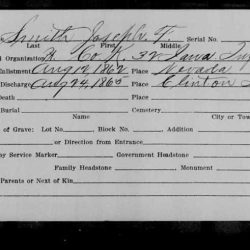 Smith Joseph T. Serial No.
Last First Middle
Organization Co K, 32 Iowa Inf
Enlistment Aug 19, 1862 Place Nevada
Discharge Aug 24, 1865 Place Clinton
Death Place
Burial Cemetery City or Town
of Grave: Lot No. Block No. Addition
or Direction from Entrance
by Service Marker Government Headstone
Family Headstone Monument
Parents or Next of Kin